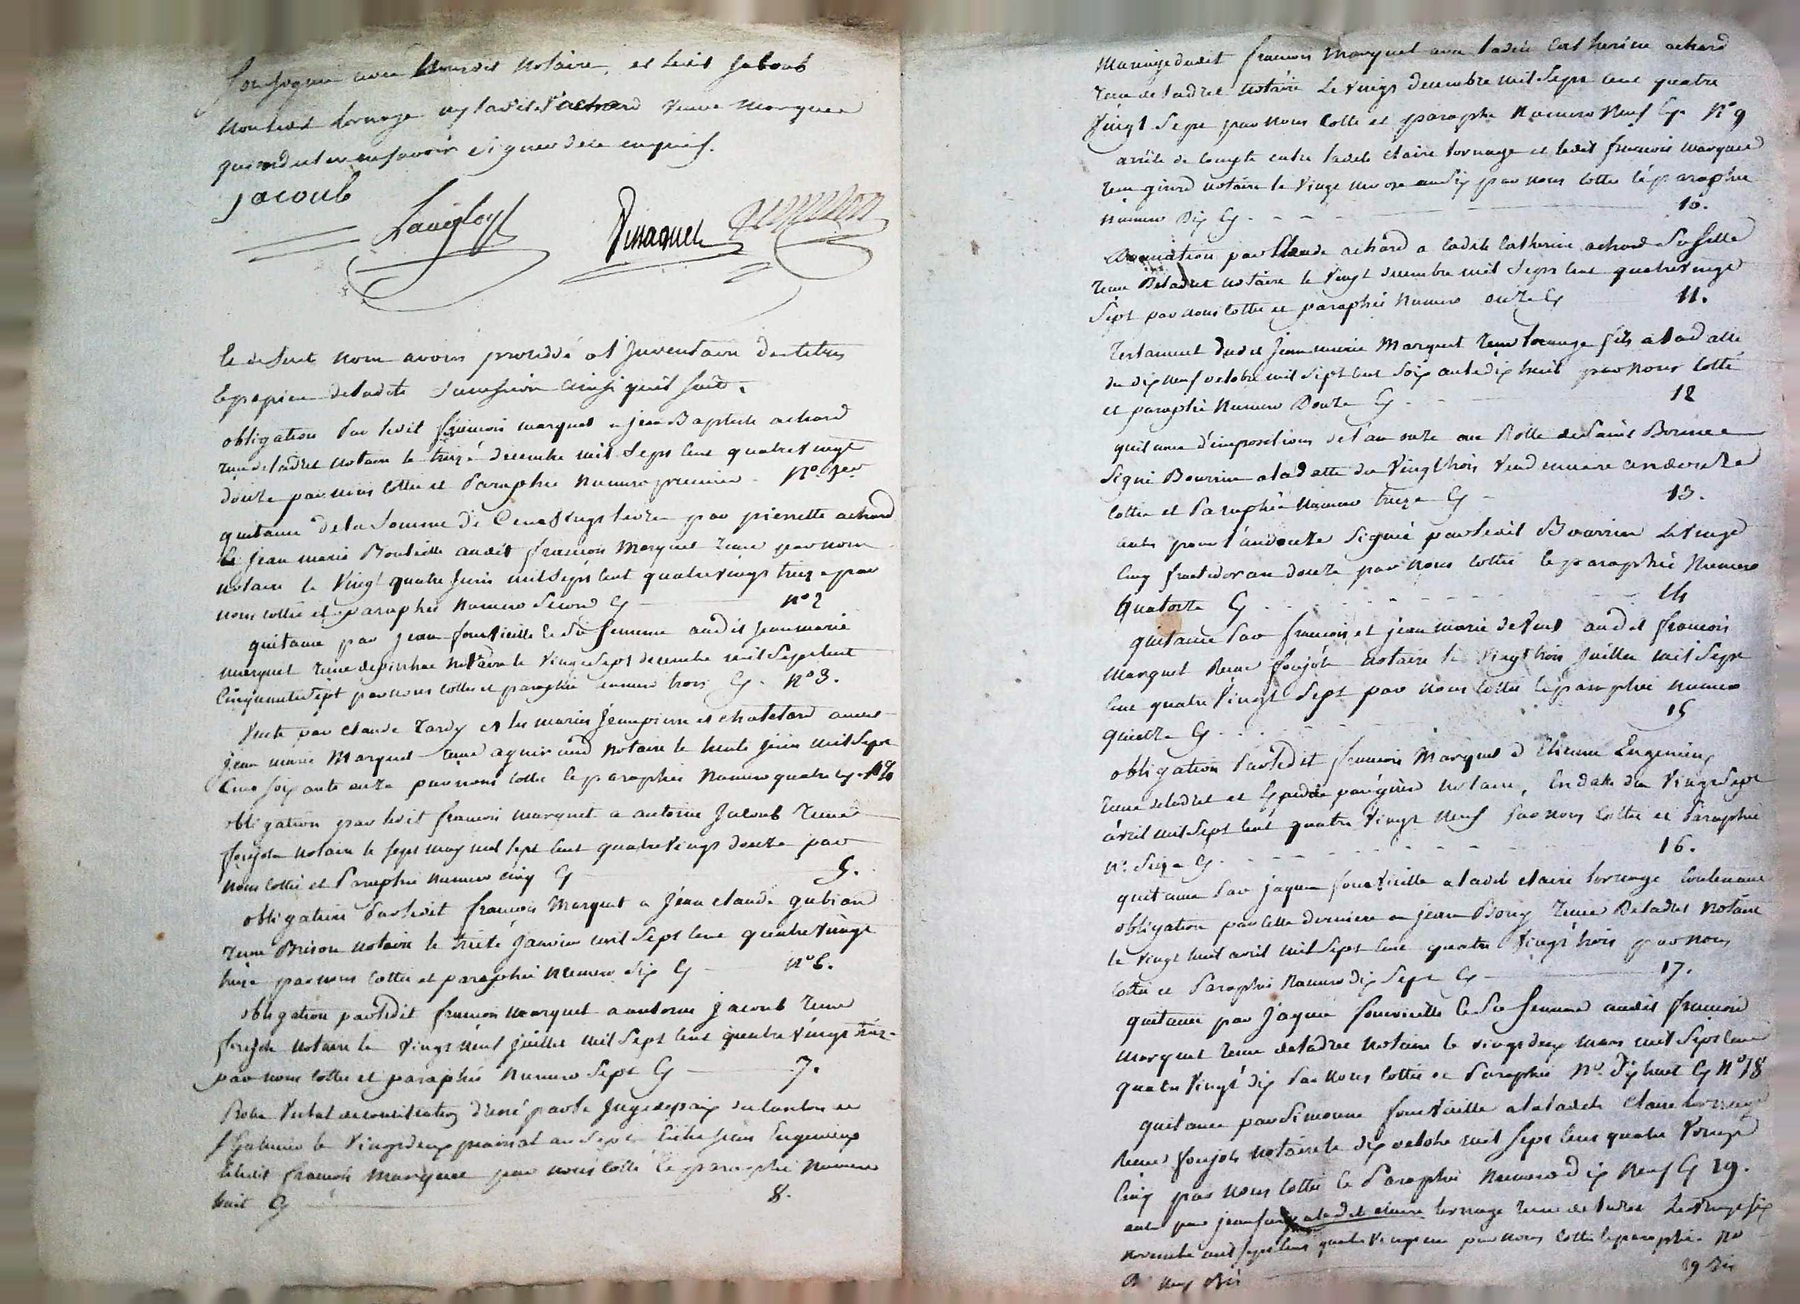 soussignés avec nousdit notaire, et ledit Jacoub
non ledit tornage ny ladite achard veuve Marquet
qui ont dit ne savoir signer de ce enquis.
Jacoub
Langloys
Pinaquet
Et desuite nous avons procédé a l'Inventaire des titres
et papiers de ladite succession ainsi qu'il suit.
obligation par ledit françois marquet a jean Baptiste achard
reçue deladret notaire le treize decembre mil sept cent quatre vingt
douze par nous cottée et paraphée Numero premier. N° 1er
quitance de la somme de Cent vingt livres par pierrette achard
et jean marie Bouteille audit françois Marquet reçue par nous
notaire le Vingt quatre Juin mil sept cent quatre vingt treize par
nous cottée et paraphée Numero Second Cy n° 2
quitance par Jean fontvieille et sa femme audit jean marie
marquet reçue notaire le Vingt sept decembre mil sept cent
Cinquante sept par nous cottée et paraphée numero trois Cy. n° 3.
Vente par claude Tardy et les mariés Jean pierre et chatelard a
jean marie Marquet reçue aguiraud notaire le trente juin mil sept
Cent soixante onze par nous cottée et paraphée Numero quatre Cy. N° 4
obligation par ledit françois marquet a antoine Jacoub reçue
foujols notaire le sept may mil sept cent quatre vingt douze par
nous cottée et paraphée numero cinq Cy 5.
obligation par ledit françois Marquet a Jean claude gubian
reçue Brison notaire le Janvier mil sept cent quatre vingt
treize par nous cottée et paraphée Numero Six Cy n° 6.
obligation par ledit françois marquet a antoine jacoub reçue
foujols notaire le vingt neuf juillet mil sept cent quatre vingt treize
par nous cottée et paraphée Numero Sept Cy 7.
Procès Verbal de conciliation dressé par le Juge de paix du canton de
St Galmier le Vingt deux prairial an sept entre Jean Engenieux
et ledit françois Marquet par nous cotté et paraphé Numero
huit Cy 8.
Mariage dudit françois Marquet avec ladite Catherine achard
reçu deladret notaire Le Vingt decembre mil sept cent quatre
Vingt Sept par nous cotté et paraphé Numero Neuf Cy N° 9
arrêté de compte entre ladite claire tornage et ledit françois marquet
reçu girard notaire le Vingt nivose an dix par nous cotté et paraphé
Numero Dix Cy 10.
Donnation par Claude achard a ladite Catherine achard Sa fille
reçue Deladret notaire le Vingt decembre mil sept cent quatre vingt
Sept par nous cottée et paraphée Numero onze Cy 11.
Testament dudit Jean marie Marquet reçu tornage fils a la datte
du dix neuf octobre mil sept cent soixante dix huit par nous cotté
et paraphé Numero Douze Cy 12
quitance d'impositions de l'an onze au Rolle de Saint Bonnet
Signé Bourrin a la datte du Vingt trois Vendemiaire an douze
cottée et Paraphée Numero treize Cy 13.
autre pour l'an douze Signée par ledit Bourrin Le vingt
Cinq fructidor an douze par nous cottée et paraphée Numero
Quatorze Cy 14
quitance par françois et jean marie audit françois
Marquet Reçue foujols notaire le Vingt trois Juillet mil sept
cent quatre Vingt Sept par nous cottée et paraphée numero
quinze Cy 15
obligation par ledit françois Marquet a Etienne Engenieux
reçue deladret et Expediée par girin notaire, En datte du Vingt Sept
avril mil sept cent quatre Vingt Neuf par nous cottée et Paraphée
N° Seize Cy 16.
quitance par jaque fontvieille a ladite claire tornage Contenant
obligation par cette derniere a jean Bory reçue Deladret Notaire
le vingt huit avril mil sept cent quatre Vingt trois par nous
cottée et Paraphée Numero dix Sept Cy 17.
quitance par Jaque fontvieille et Sa femme audit françois
Marquet reçue deladret notaire le vingt deux mars mil sept cent
quatre Vingt dix par Nous cottée et Paraphée N° Dix huit Cy N° 18
quitance par Simonne fontvieille a ladite Claire tornage
Reçue foujols notaire le dix octobre mil sept cent quatre Vingt
Cinq par nous cottée et Paraphée Numero dix Neuf Cy 19.
autre par jean a ladite claire tornage reçue deladret Le vingt six
novembre mil sept cent quatre vingt par nous cottée et paraphée no
neuf Bis 19 Bis